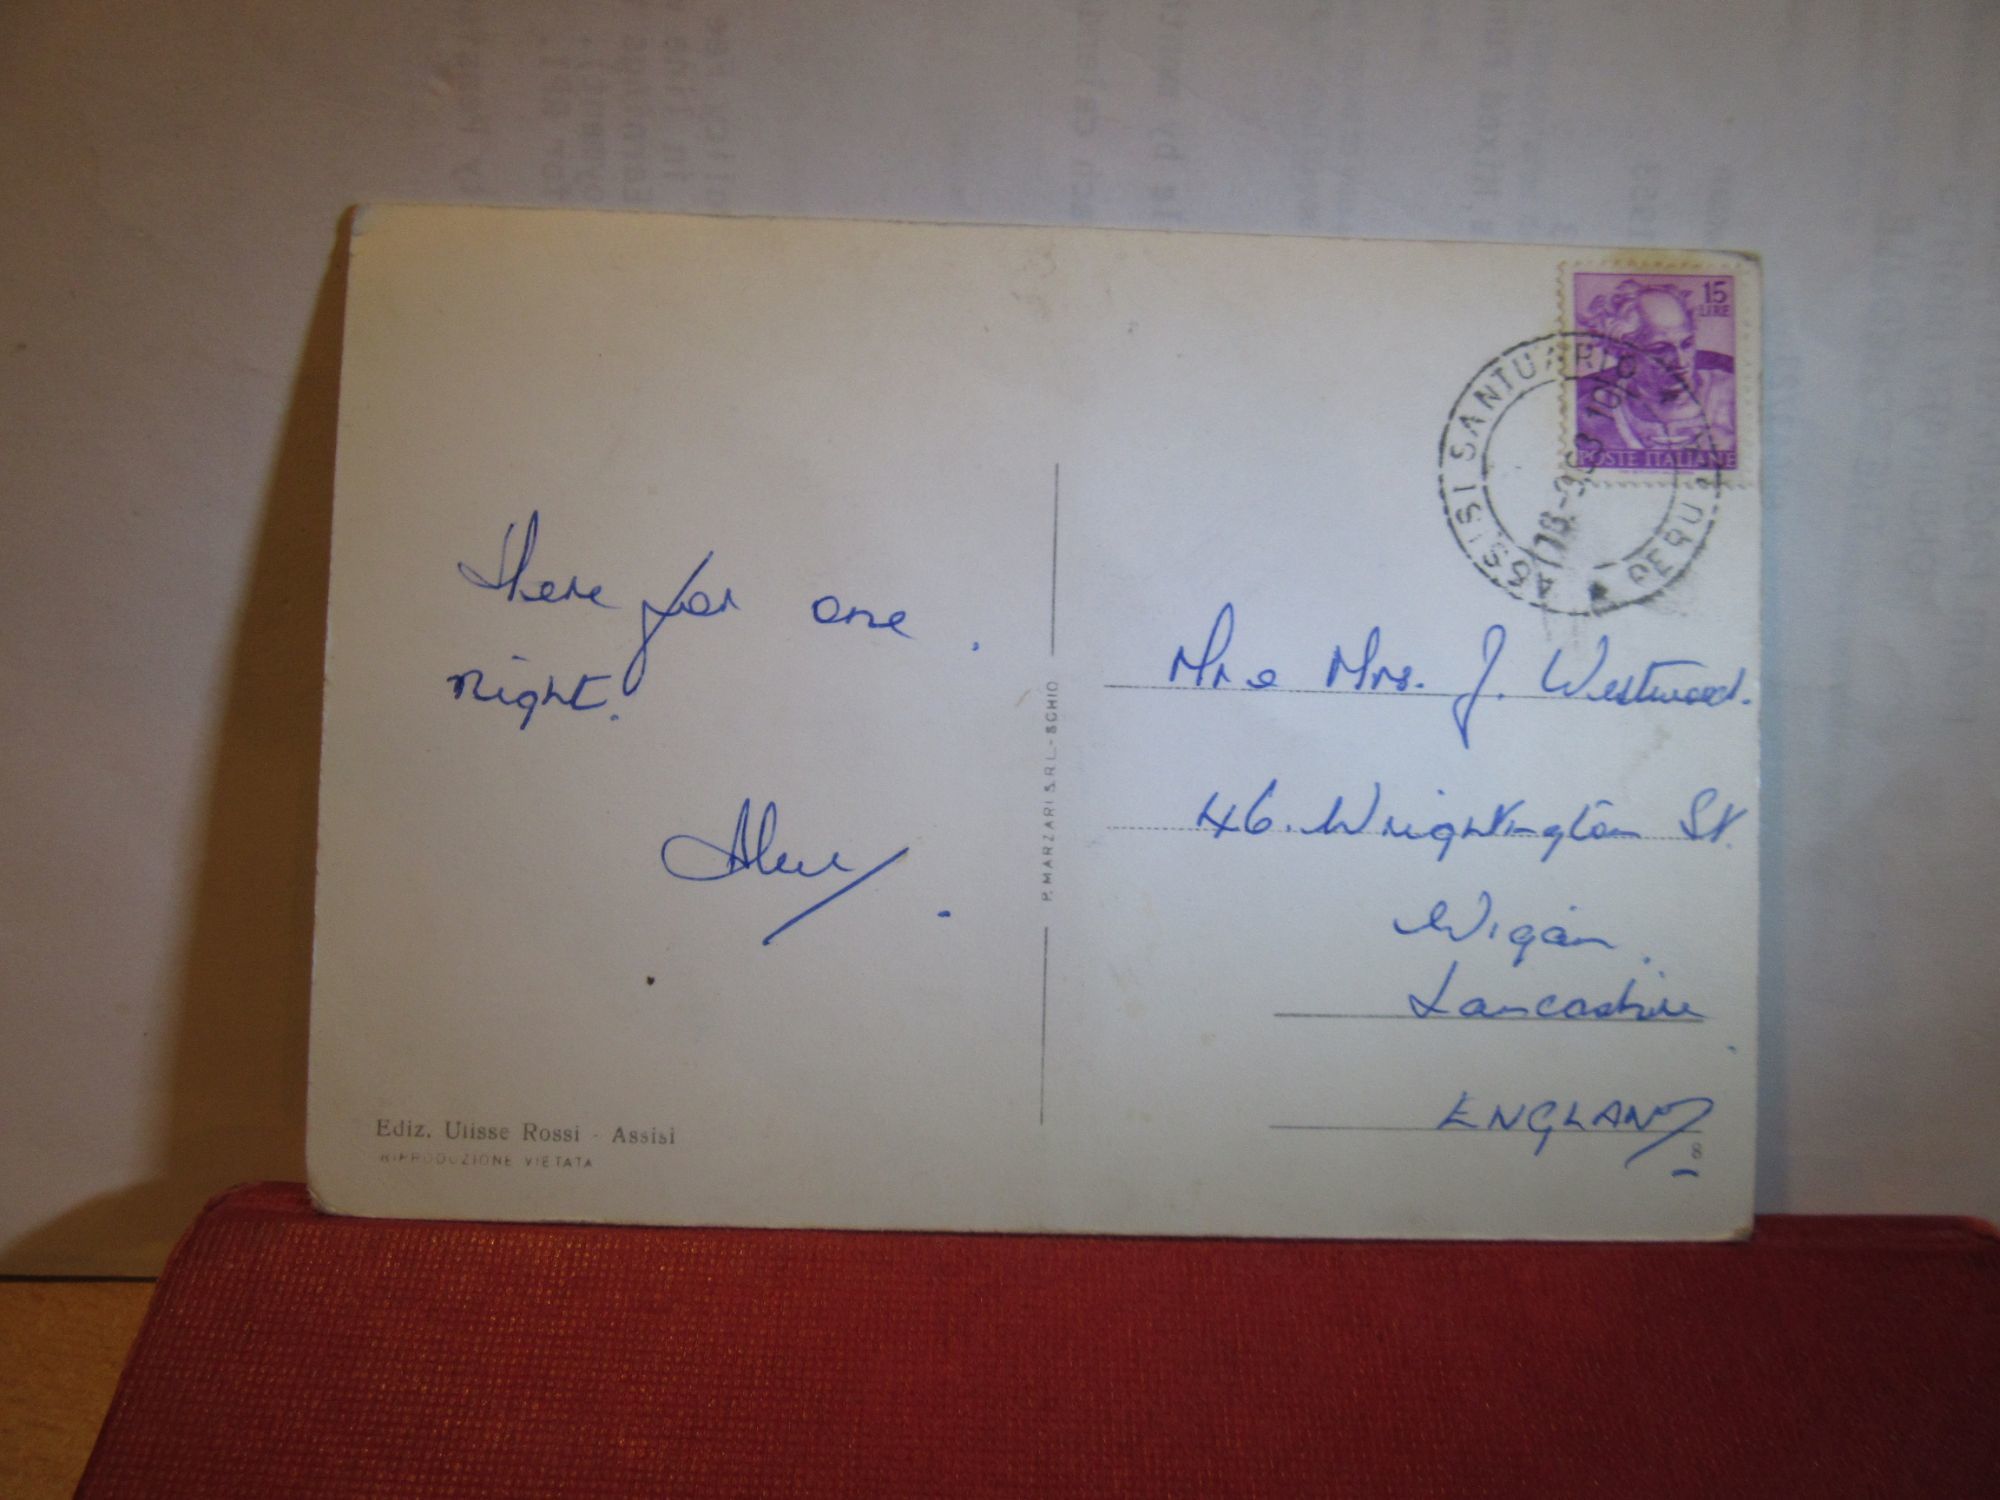 Here for one
night.
Alex
Ediz. Ulisse Rossi - Assisi
RIPRODUZIONE VIETATA
P. MARZARI S.R.L. - SCHIO
15
LIRE
POSTE ITALIANE
ASSISI SANTUARIO
PERUGIA
Mr & Mrs. J. Westwood.
46. Wrightington St.
Wigan.
Lancashire
ENGLAND
8